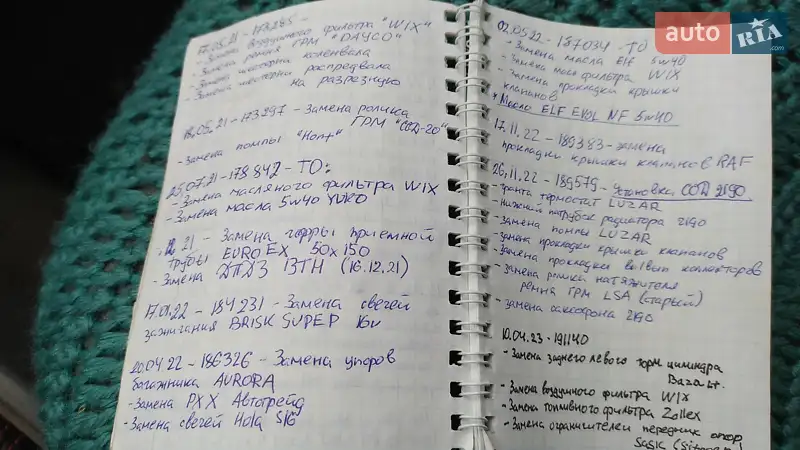 17.05.21 - 173285 -
- Замена воздушного фильтра "WIX"
- Замена ремня ГРМ "DAYCO"
- Замена шестерни коленвала
- Замена шестерни распредвала
на разрезную
18.05.21 - 173297 - Замена ролика
ГРМ
- Замена помпы "Hort"
25.07.21 - 178842 - ТО:
- Замена масляного фильтра WIX
- Замена масла 5w40 YUKO
21 - Замена гофры приемной
трубы EUROEX 50x150
- Замена ДПДЗ ВТН (16.12.21)
17.01.22 - 184231 - Замена свечей
зажигания BRISK SUPER
20.04.22 - 186326 - Замена упоров
багажника AURORA
- Замена РХХ Автотрейд
- Замена свечей Hola S16
02.05.22 - 187034 - ТО
- Замена масла Elf 5w40
- Замена мас фильтра WIX
- Замена прокладки крышки
клапанов
* Масло ELF EVOL NF 5w40
17.11.22 - 189383 - замена
прокладки крышки клапанов RAF
26.11.22 - 189579 - установка СОД 2190
- Гранта термостат LUZAR
- Нижний патрубок радиатора 2190
- Замена помпы LUZAR
- Замена прокладки крышки клапанов
- Замена прокладки коллекторов
- Замена ролика натяжителя
ремня ГРМ LSA (старый)
- замена саксофона 2190
10.04.23 - 191140
- Замена заднего левого торм цилиндра
Bazalt.
- Замена воздушного фильтра WIX
- Замена топливного фильтра Zollex
- Замена ограничителей передних
SASIK
auto RIA
.com